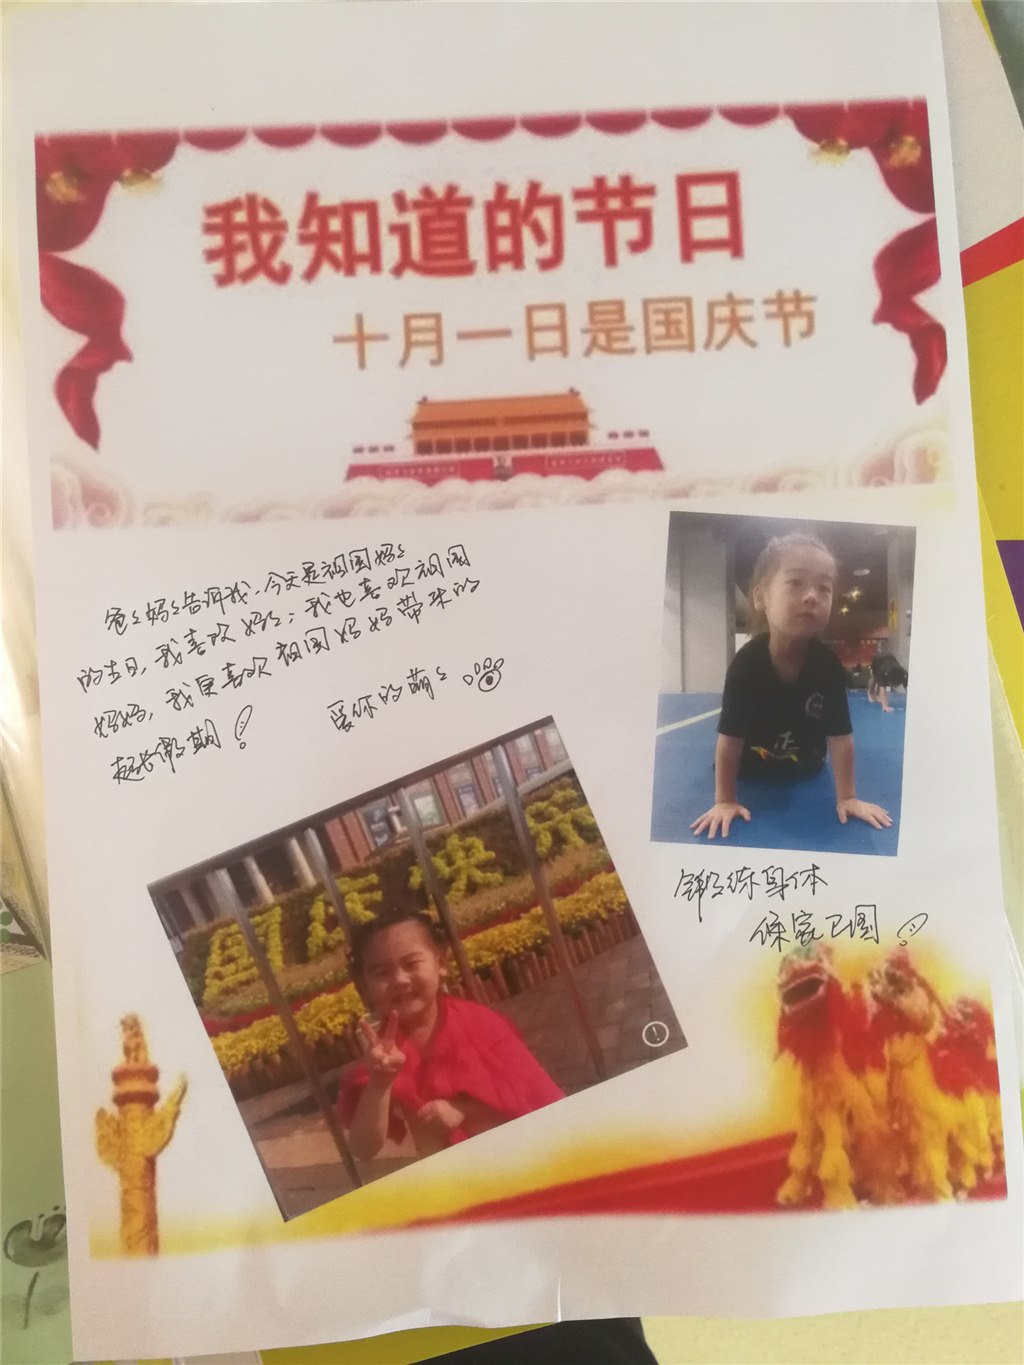 我知道的节日
十月一日是国庆节
爸爸妈妈告诉我，今天是祖国妈妈
的生日，我喜欢妈妈；我也喜欢祖国
妈妈，我更喜欢祖国妈妈带来的
超长假期！
爱你的萌萌
锻练身体
保家卫国！
国庆
正